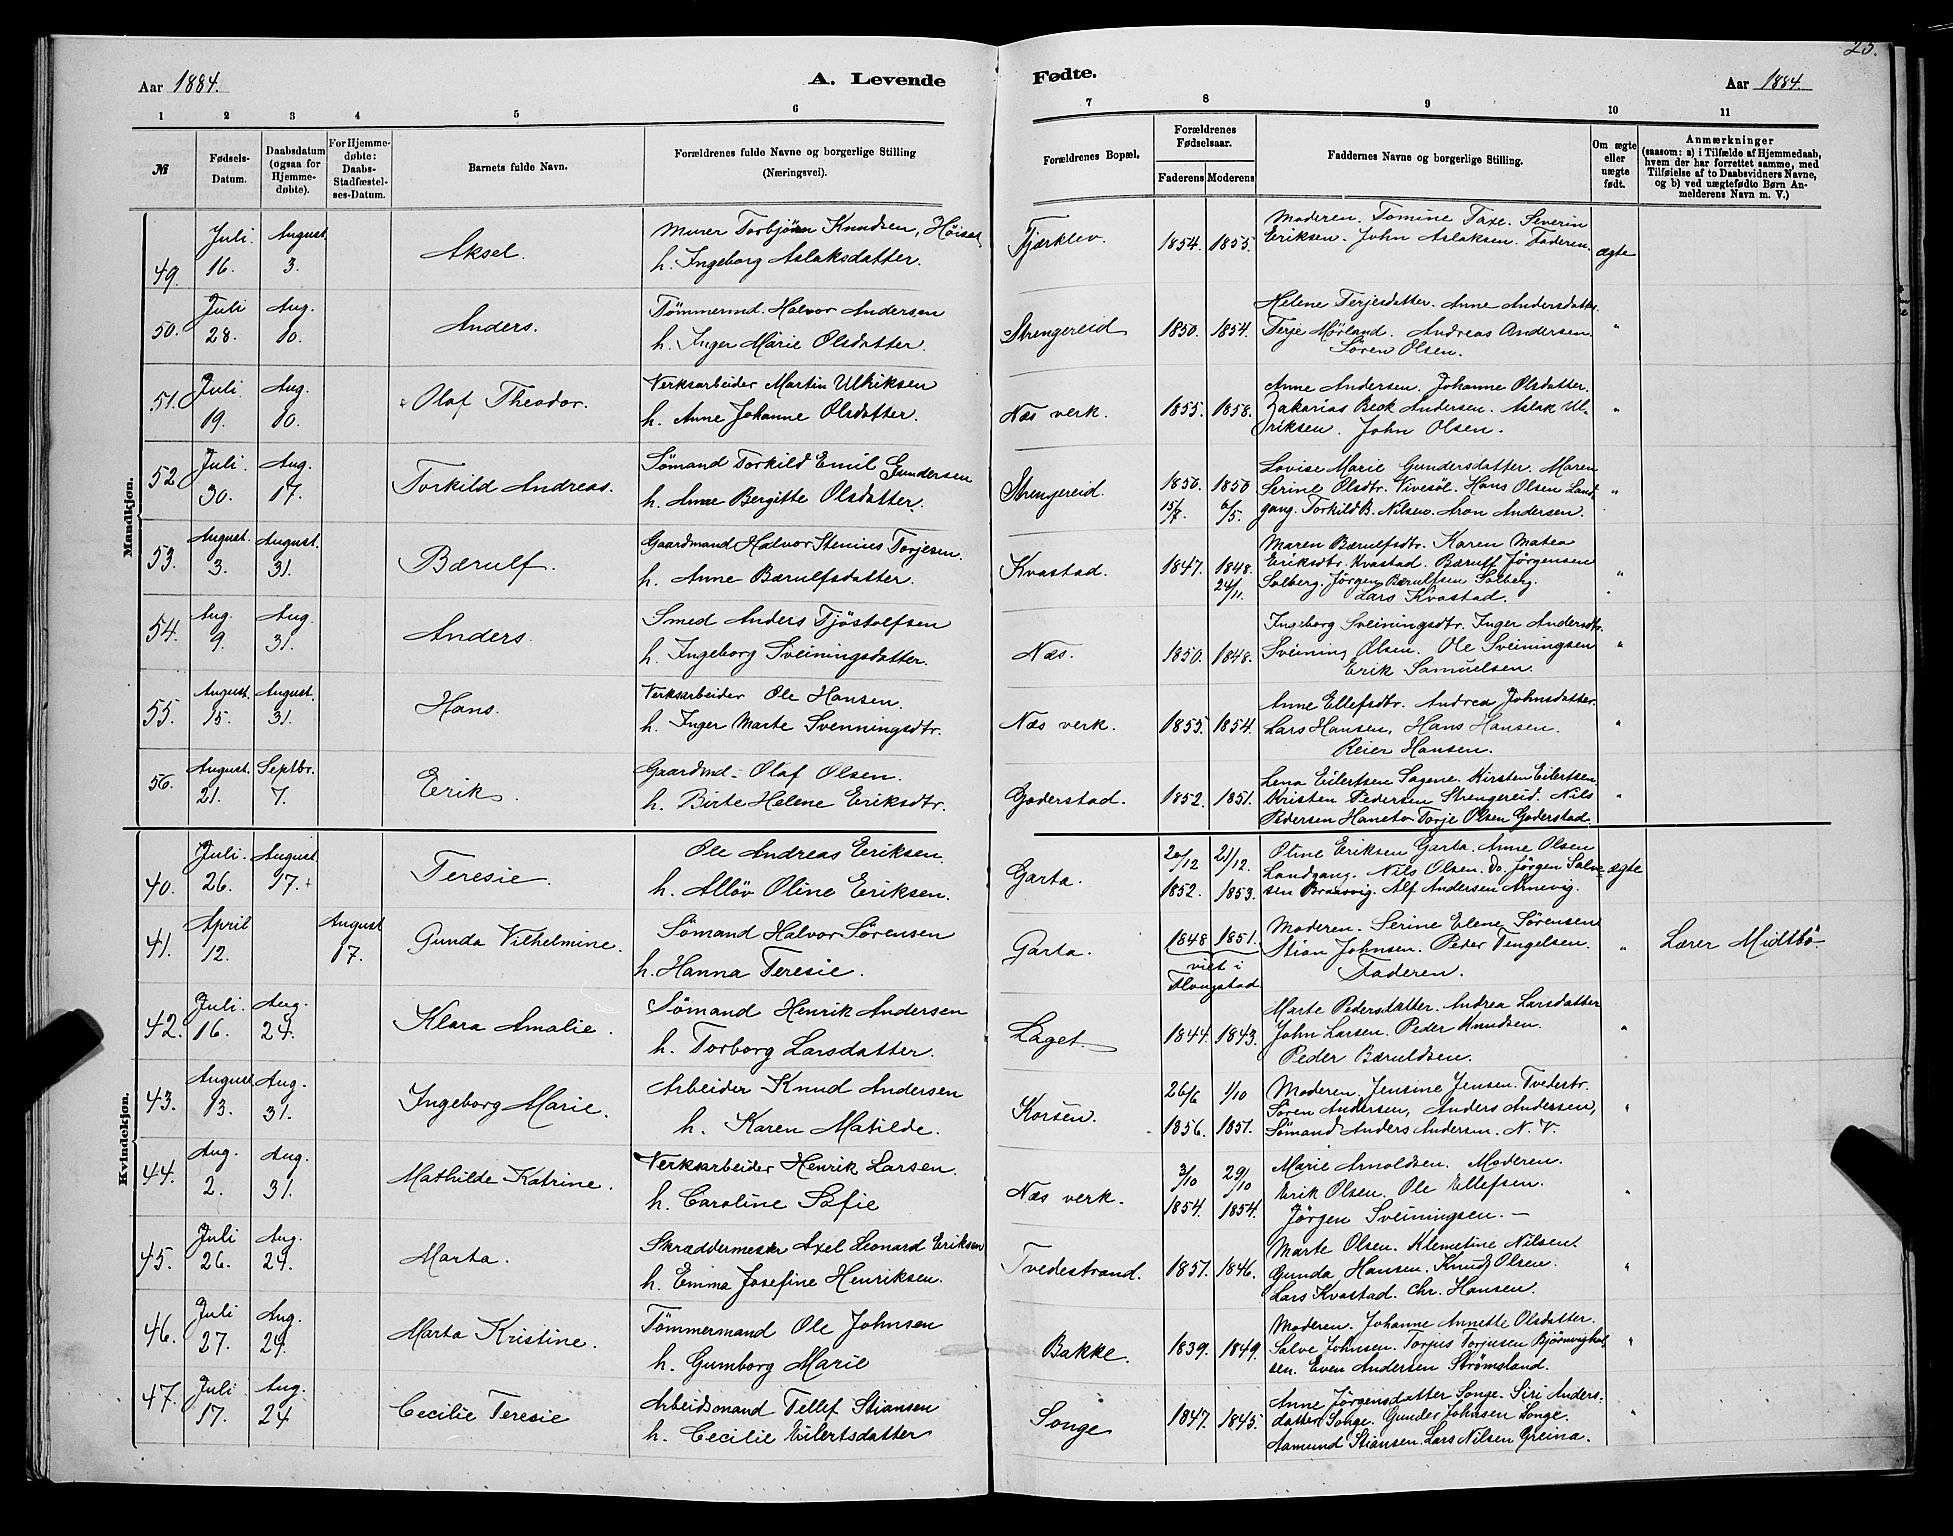 25.
Aar 1884.
A. Levende
Fødte.
Aar 1884.
1 2 3 4 5 6 7 8 9 10 11
№
Fødsels-
Datum.
Daabsdatum
(ogsaa for
Hjemme-
døbte).
For Hjemme-
døbte:
Daabs-
Stadfæstel-
ses-Datum.
Barnets fulde Navn.
Forældrenes fulde Navne og borgerlige Stilling
(Næringsvei).
Forældrenes Bopæl.
Forældrenes
Fødselsaar.
Faderens Moderens
Faddernes Navne og borgerlige Stilling.
Om ægte
eller
uægte
født.
Anmærkninger
(saasom: a) i Tilfælde af Hjemmedaab,
hvem der har forrettet samme, med
Tilføielse af to Daabsvidners Navne,
og b) ved uægtefødte Børn An-
melderens Navn m. V.)
Mandkjøn.
49. Juli 16. August 3. Aksel.
Murer Torbjørn Knudsen, Høiset
h. Ingeborg Aslaksdatter.
Fjærklev. 1854. 1855.
Moderen. Tomine Taxe. Severin
Eriksen. John Aslaksen. Faderen. ægte
50. Juli 28. Aug. 10. Anders.
Tømmermd. Halvor Andersen
h. Inger Marie Olsdatter.
Strengereid 1850. 1854.
Helene Terjesdatter. Anne Andersdatter.
Terje Mørland. Andreas Andersen "
Søren Olsen.
51. Juli 19. Aug. 10. Olaf Theodor.
Verksarbeider Martin Ulriksen
h. Anne Johanne Olsdatter.
Næs verk. 1855. 1858.
Anne Andersen. Johanne Olsdatter.
Zakarias Beck Andersen. Aslak Ul- "
riksen. John Olsen.
52 Juli 30. Aug. 17. Torkild Andreas.
Sømand Torkild Emil Gundersen
h. Anne Bergitte Olsdatter.
Strengereid. 1850. 15/7. 1850 6/5.
Lovise Marie Gundersdatter. Maren
Serine Olsdtr. Vivesøl. Hans Olsen Land "
gang. Torkild B. Nilsen. Aron Andersen.
53. August. 3. August. 31. Bærulf.
Gaardmand Halvor Stenius Torjesen.
h. Anne Bærulfsdatter.
Kvastad. 1847. 1848. 24/11.
Maren Bærulfsdtr. Karen Matea
Eriksdtr. Kvastad. Bærulf Jörgensen
Solberg. Jörgen Bærulfsen Solberg. "
Lars Kvastad.
54. Aug. 9. Aug. 31. Anders.
Smed Anders Tjöstolfsen
h. Ingeborg Sveiningsdatter.
Næs. 1850. 1848.
Ingeborg Sveiningsdtr. Inger Andersdtr.
Sveining Olsen. Ole Sveiningsen "
Erik Samuelsen.
55. August. 15. August. 31. Hans.
Verksarbeider Ole Hansen.
h. Inger Marte Svenningsdtr.
Næs verk. 1855. 1854.
Anne Ellefsdtr. Andrea Johnsdatter.
Lars Hansen, Hans Hansen. "
Reier Hansen.
56. August. 21. Septbr. 7. Erik.
Gaardmd- Olaf Olsen.
h. Birte Helene Eriksdtr.
Goderstad. 1852. 1851.
Lena Eilertsen Sagene. Kirsten Eilertsen
Kristen Pedersen Strengereid. Nils "
Pedersen Haneto Torje Olsen Goderstad.
Kvindekjøn.
40. Juli. 26. August 17. Teresie.
Ole Andreas Eriksen.
h. Alløv Oline Eriksen.
Garta. 20/12 1852. 21/12. 1853.
Otine Eriksen Garta. Anne Olsen
Landgang. Nils Olsen. Do Jørgen Salve- ægte
sen Braasvig. Alf Andersen Arnevig.
41. April 12. August 17. Gunda Vilhelmine.
Sømand Halvor Sørensen
h. Hanna Teresie.
Garta. 1848 1851.
viet i
Moderen. Serine Elene Sørensen
Stian Johnsen. Peder Tengelsen. " Lærer Midtbö
Faderen.
42. Juli. 16. Aug. 24. Klara Amalie.
Sømand Henrik Andersen
h. Torborg Larsdatter.
Laget. 1844. 1843.
Marte Pedersdatter. Andrea Larsdatter
John Larsen. Peder Knudsen. "
Peder Bæruldsen.
43. August 13. Aug. 31. Ingeborg Marie.
Arbeider Knud Andersen
h. Karen Matilde.
Korsen. 26/6 1856. 1/10 1857.
Moderen. Jensine Jensen. Tvedestr.
Søren Andersen, Anders Andersen, "
Sømand Anders Andersen. N. V.
44. Aug. 2. Aug. 31. Mathilde Katrine.
Verksarbeider Henrik Larsen.
h. Caroline Sofie
Næs verk. 3/10 1854. 29/10 1854.
Marie Arnoldsen. Moderen.
Erik Olsen. Ole Ellefsen. "
Jörgen Sveiningsen. —
45. Juli 26. Aug. 24. Marta.
Skræddermester Axel Leonard Eriksen
h. Emma Josefine Henriksen.
Tvedestrand. 1857. 1846.
Marte Olsen. Klemetine Nilsen.
Gunda Hansen. Knud Olsen. "
Lars Kvastad. Chr. Hansen.
46. Juli 27. Aug. 24. Marta Kristine.
Tømmermand Ole Johnsen
h. Gumborg Marie
Bakke. 1839. 1849.
Moderen. Johanne Annette Olsdatter.
Salve Johnsen. Torjus Torjusen Bjørnvighol- "
sen. Even Andersen Strømsland.
47. Juli 17. Aug. 24 Cecilie Teresie
Arbeidsmand Tellef Stiansen
h. Cecilie Eilertsdatter
Songe 1847. 1845.
Anne Jörgensdatter Songe. Siri Anders-
datter Songe. Gunder Johnsen Songe. "
Aamund Stiansen. Lars Nilsen Greina.